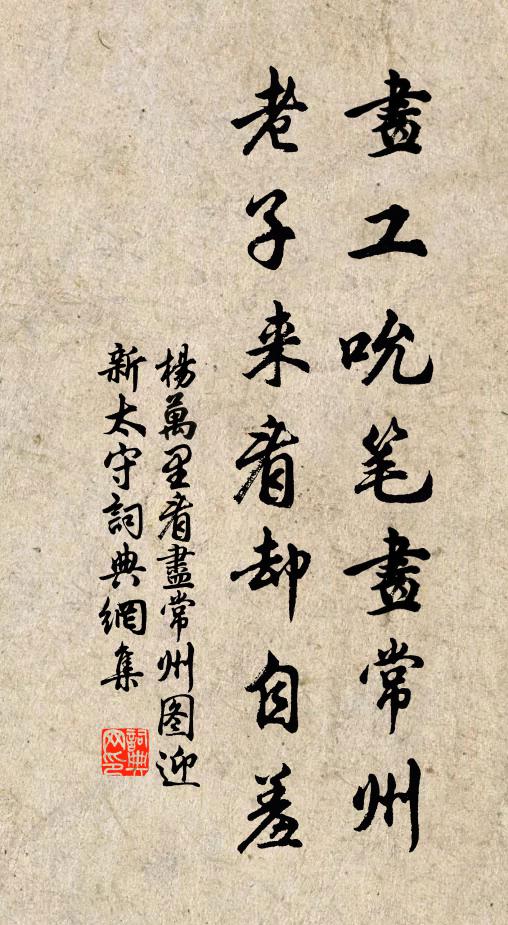 畫工吮笔畫常州
老子来看却自羞
楊萬里看盡常州图迎
新太守詞典網集
詞典网印